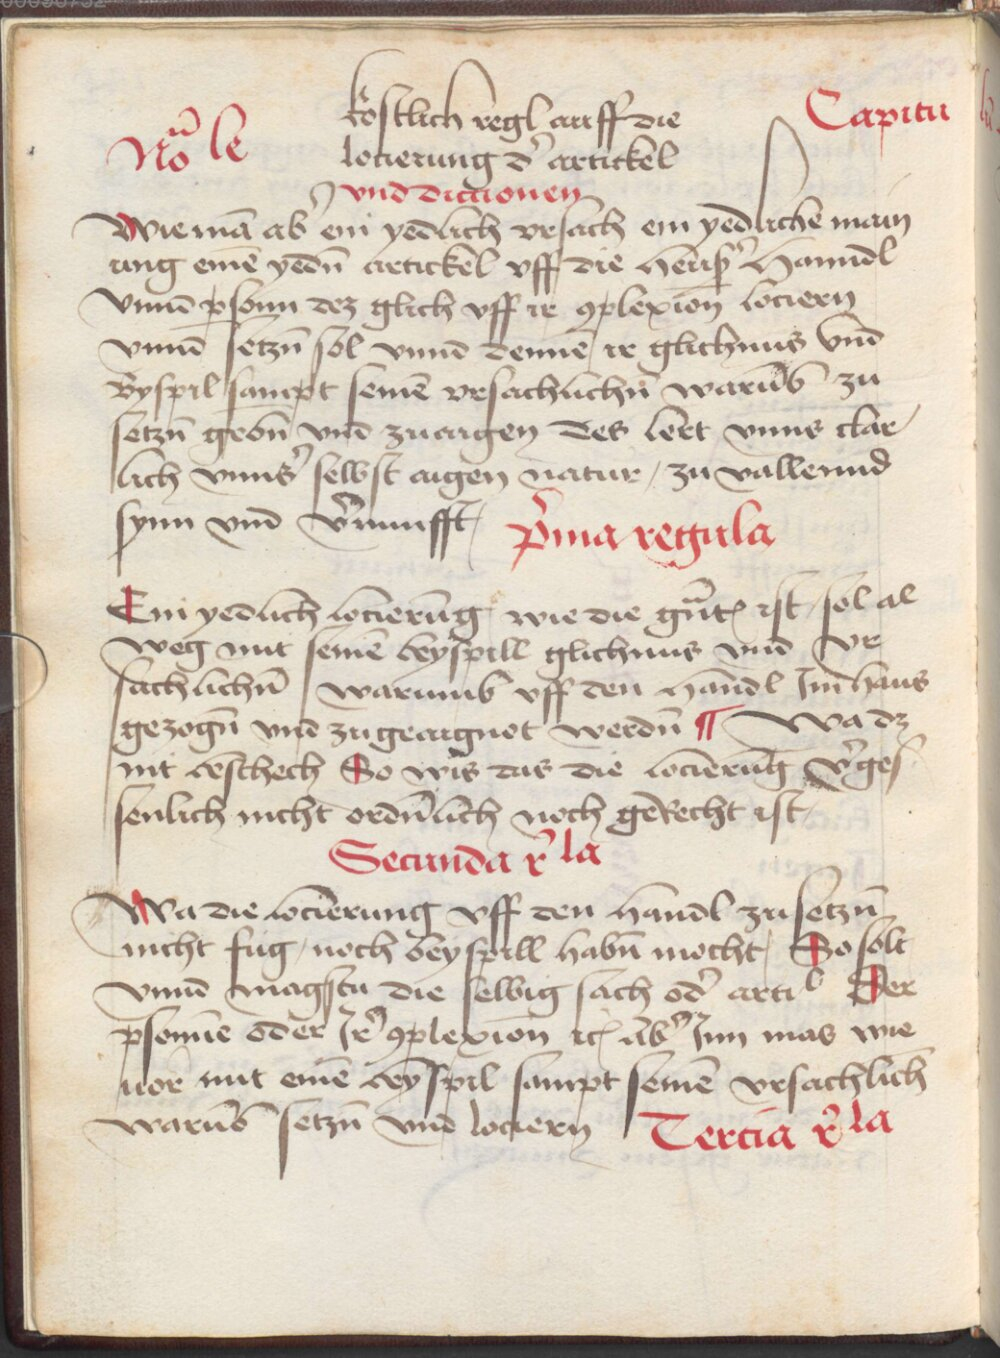 00090752
kostlich regl auff die
Capitu
No͞ le
locierung d' artickel
vnd dictionen
Wie mā ab' ein yedlich vrsach ein yedliche main
ung einē yedn̄ artickel vff die heüs'r Hanndl
Vnnd psonn dez glich vff ir ꝯplexion lociern
vnnd setzn̄ sol vnnd dennē ir glichnus vnd
Byspil sampt seinē vrsachlichn̄ warūb zu
setzn̄ gebn̄ vnd zuaigen des lert vnns clar
lich vnns' selbst aigen natur / zuuallennd
synn vnd v'nunfft /
p'ma regula
Ein yedlich locierūng wie die gn̄t ist / sol al
weg mit seinē beyspill glichnus vnd vr
sachlichn̄ warumb vff den handl Im haus
gezogn̄ vnd zugeaignot werdn̄ ¶ Wa dz
nit beschech So wis das die locierūng v'ges
senlich nicht ordn̄lich noch geRecht ist /
Secunda r'la
Wa die locierung vff den hanndl zusetzn̄
nicht fug / noch beyspill habn̄ mocht / So solt
vnnd magstu die selbig sach od' arti^l Der
psonne oder Ir' ꝯplexion ꝛc ab' Inn mas wie
uor mit einē beyspil sampt seinē vrsachlich
warūb setzn̄ vnd lociern
Tercia r'la